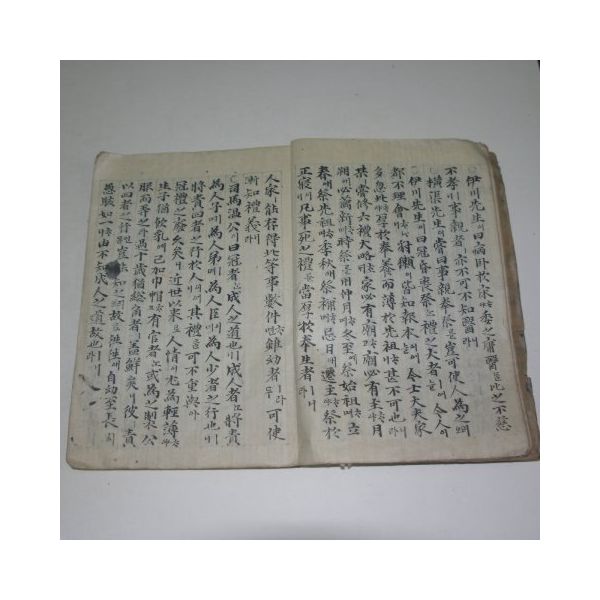 伊川先生이曰病臥於床야委之庸醫를比之不慈
不孝니事親者ㅣ亦不可不知醫라니
橫渠先生이嘗曰事親奉祭를豈可使人爲之리오
伊川先生이曰冠昏喪祭는禮之大者ㅣ어今人이
都不理會豺獺이皆知報本이어今士大夫家
多忽此야厚於奉養而薄於先祖니甚不可也라
某嘗修六禮大略호家必有廟고廟必有主月
朔에必薦新며時祭를用仲月며冬至에祭始祖며立
春에祭先祖며季秋에祭禰며忌日에遷主야祭於
正寢이니凡事死之禮를當厚於奉生者ㅣ라니
人家ㅣ能存得此等事數件이면雖幼者ㅣ라도可使
漸知禮義리라
司馬溫公이曰冠者는成人之道也ㅣ니成人者는將責
爲人子爲人弟爲人臣爲人少者之行也ㅣ니
將責四者之行於人이어니其禮를可不重與아
冠禮之廢ㅣ久矣라近世以來로人情이尤爲輕薄야
生子猶飮乳에已加巾帽고有官者는或爲之製公
服而弄之며過十歲猶總角者ㅣ盖鮮矣니彼責
以四者之行인豈能知之리오故로往往애自幼至長히
愚騃如一니由不知成人之道故也ㅣ라